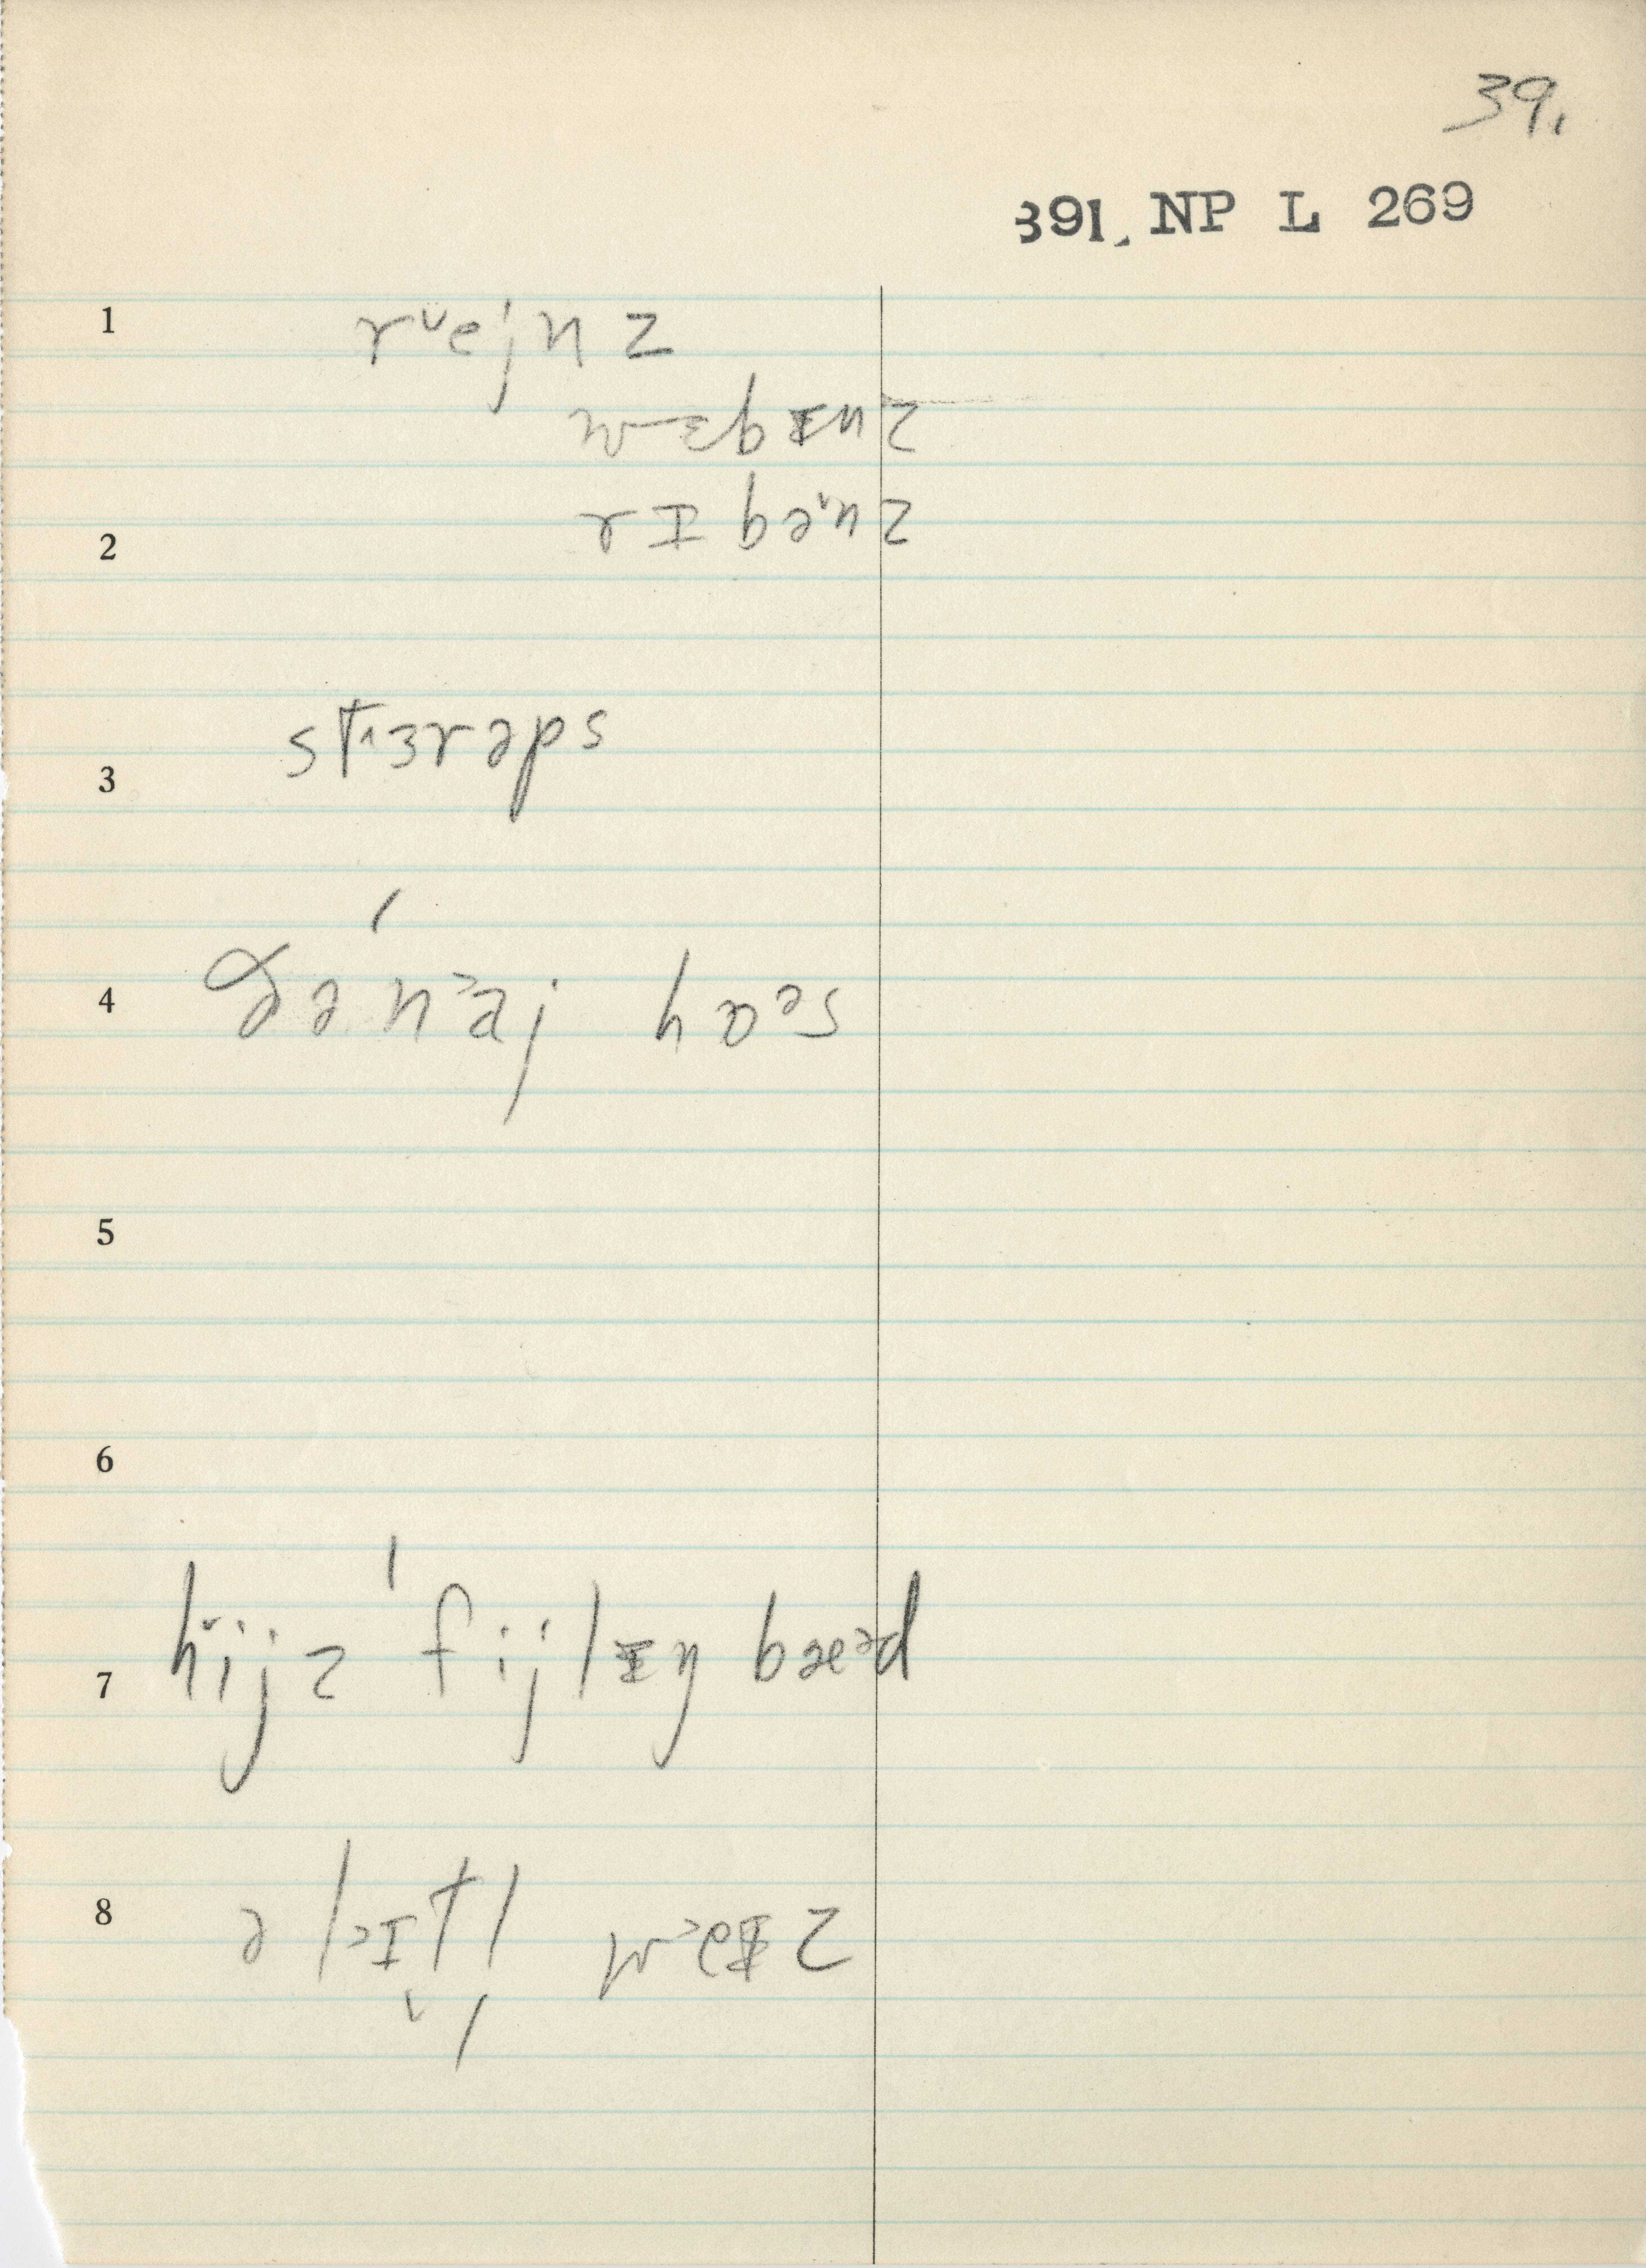 39.
391. NP L 269
1 rᵛejnz
wɛbᵻnz
2 rɪbə'nz
3 st˄ɜrəps
4 n˃aj hɒᵊs
5
6
7 hˇijz ˈfijlᵻŋ bæᵊd
8 ə l˃ɪtl w˂eᵻz